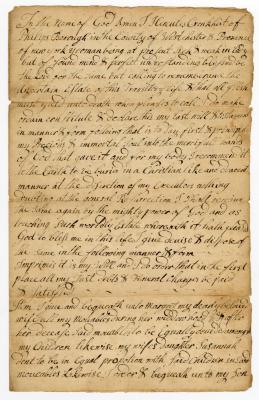 In the Name of God Amen I Hercules Cronkhite of
Philips Borough in the County of Westchester & Province
of new york yeoman being at present Sick & weak in body
but of sound mind & perfect understanding blessed be
the Lord for the same but calling to remembrance the
uncertain Estate of this Transitory life & that all flesh
must yield unto Death when pleased to call Do make
ordain constitute & Declare this my last will & Testament
in manner & form following that is to say first & principaly
my Precious & immortal Soul into the merciful hands
of God that gave it and for my body I recommend it
to the Earth to be buried in a Christian like and decent
manner at the discretion of my Executors nothing
doubting at the general Resurrection I Shall receive
the same again by the mighty power of God and as
touching such worldly Estate wherewith it hath pleased
God to bless me in this life I give devise & dispose of
the same in the following manner & form
Imprimis it is my will and I do order that in the first
place all my Just debts & Funeral charges be paid
& Satisfied
Item I give and bequeath unto Margret my dearly beloved
wife all my moveables during her widdowhood & after
her decease Said moveables to be Equally divided among
my Children likewise my wife's daughter Susannah
Dent to be in Equal proportion with said children in said
moveables Likewise I order & bequeath unto my Son